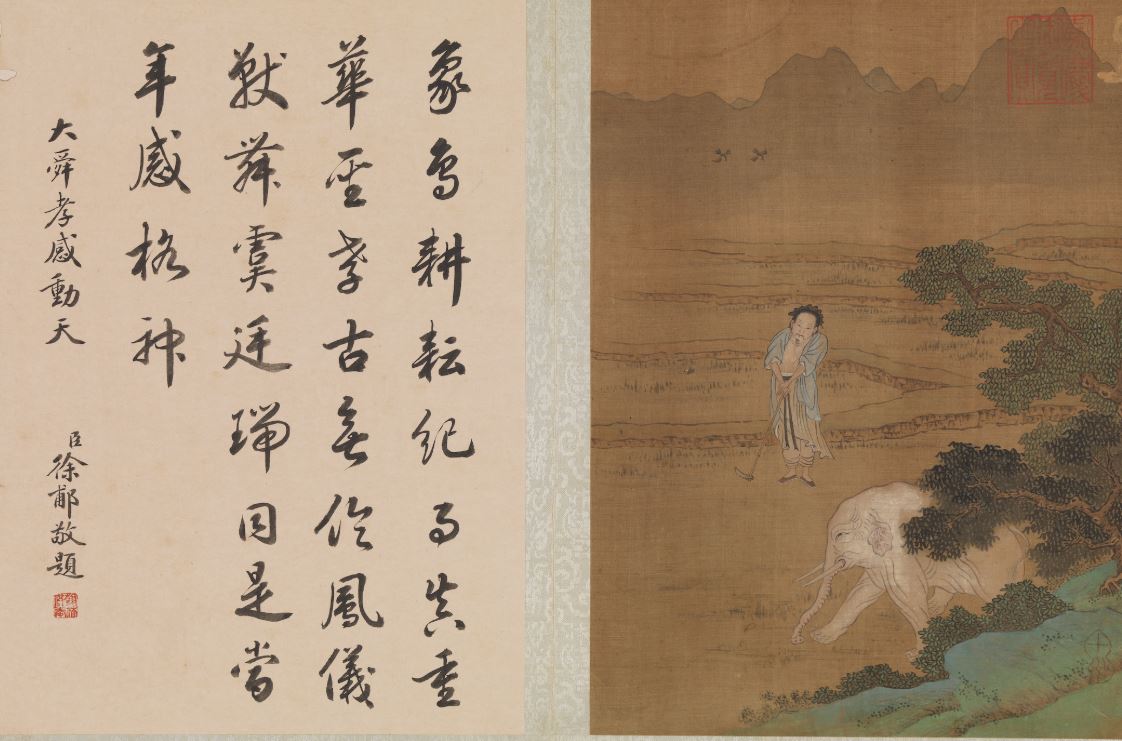 象鳥耕耘紀事真重
華聖孝古無倫鳳儀
獸舞虞廷瑞同是當
年感格神
大舜孝感動天
臣徐郙敬題